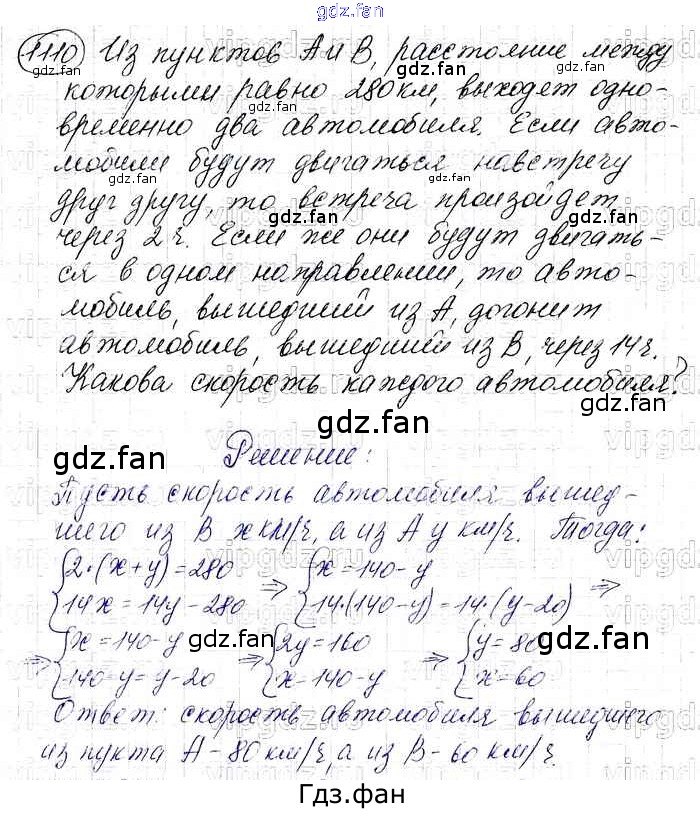 gdz.fan
1110 Из пунктов А и В, расстояние между
которыми равно 280 км, выходят одно-
временно два автомобиля. Если авто-
мобили будут двигаться навстречу
друг другу, то встреча произойдет
через 2 ч. Если же они будут двигать-
ся в одном направлении, то авто-
мобиль, вышедший из А, догонит
автомобиль, вышедший из В, через 14 ч.
Какова скорость каждого автомобиля?
gdz.fan
Решение:
Пусть скорость автомобиля вышед-
шего из В х км/ч, а из А у км/ч. Тогда:
{2·(x+y)=280 ⇒ {x=140-y ⇒
{14x=14y-280 {14·(140-y)=14·(y-20)
⇒ {x=140-y ⇒ {2y=160 ⇒ {y=80
{140-y=y-20 {x=140-y {x=60
Ответ: скорость автомобиля вышедшего
из пукта А - 80 км/ч, а из В - 60 км/ч.
Гдз.фан